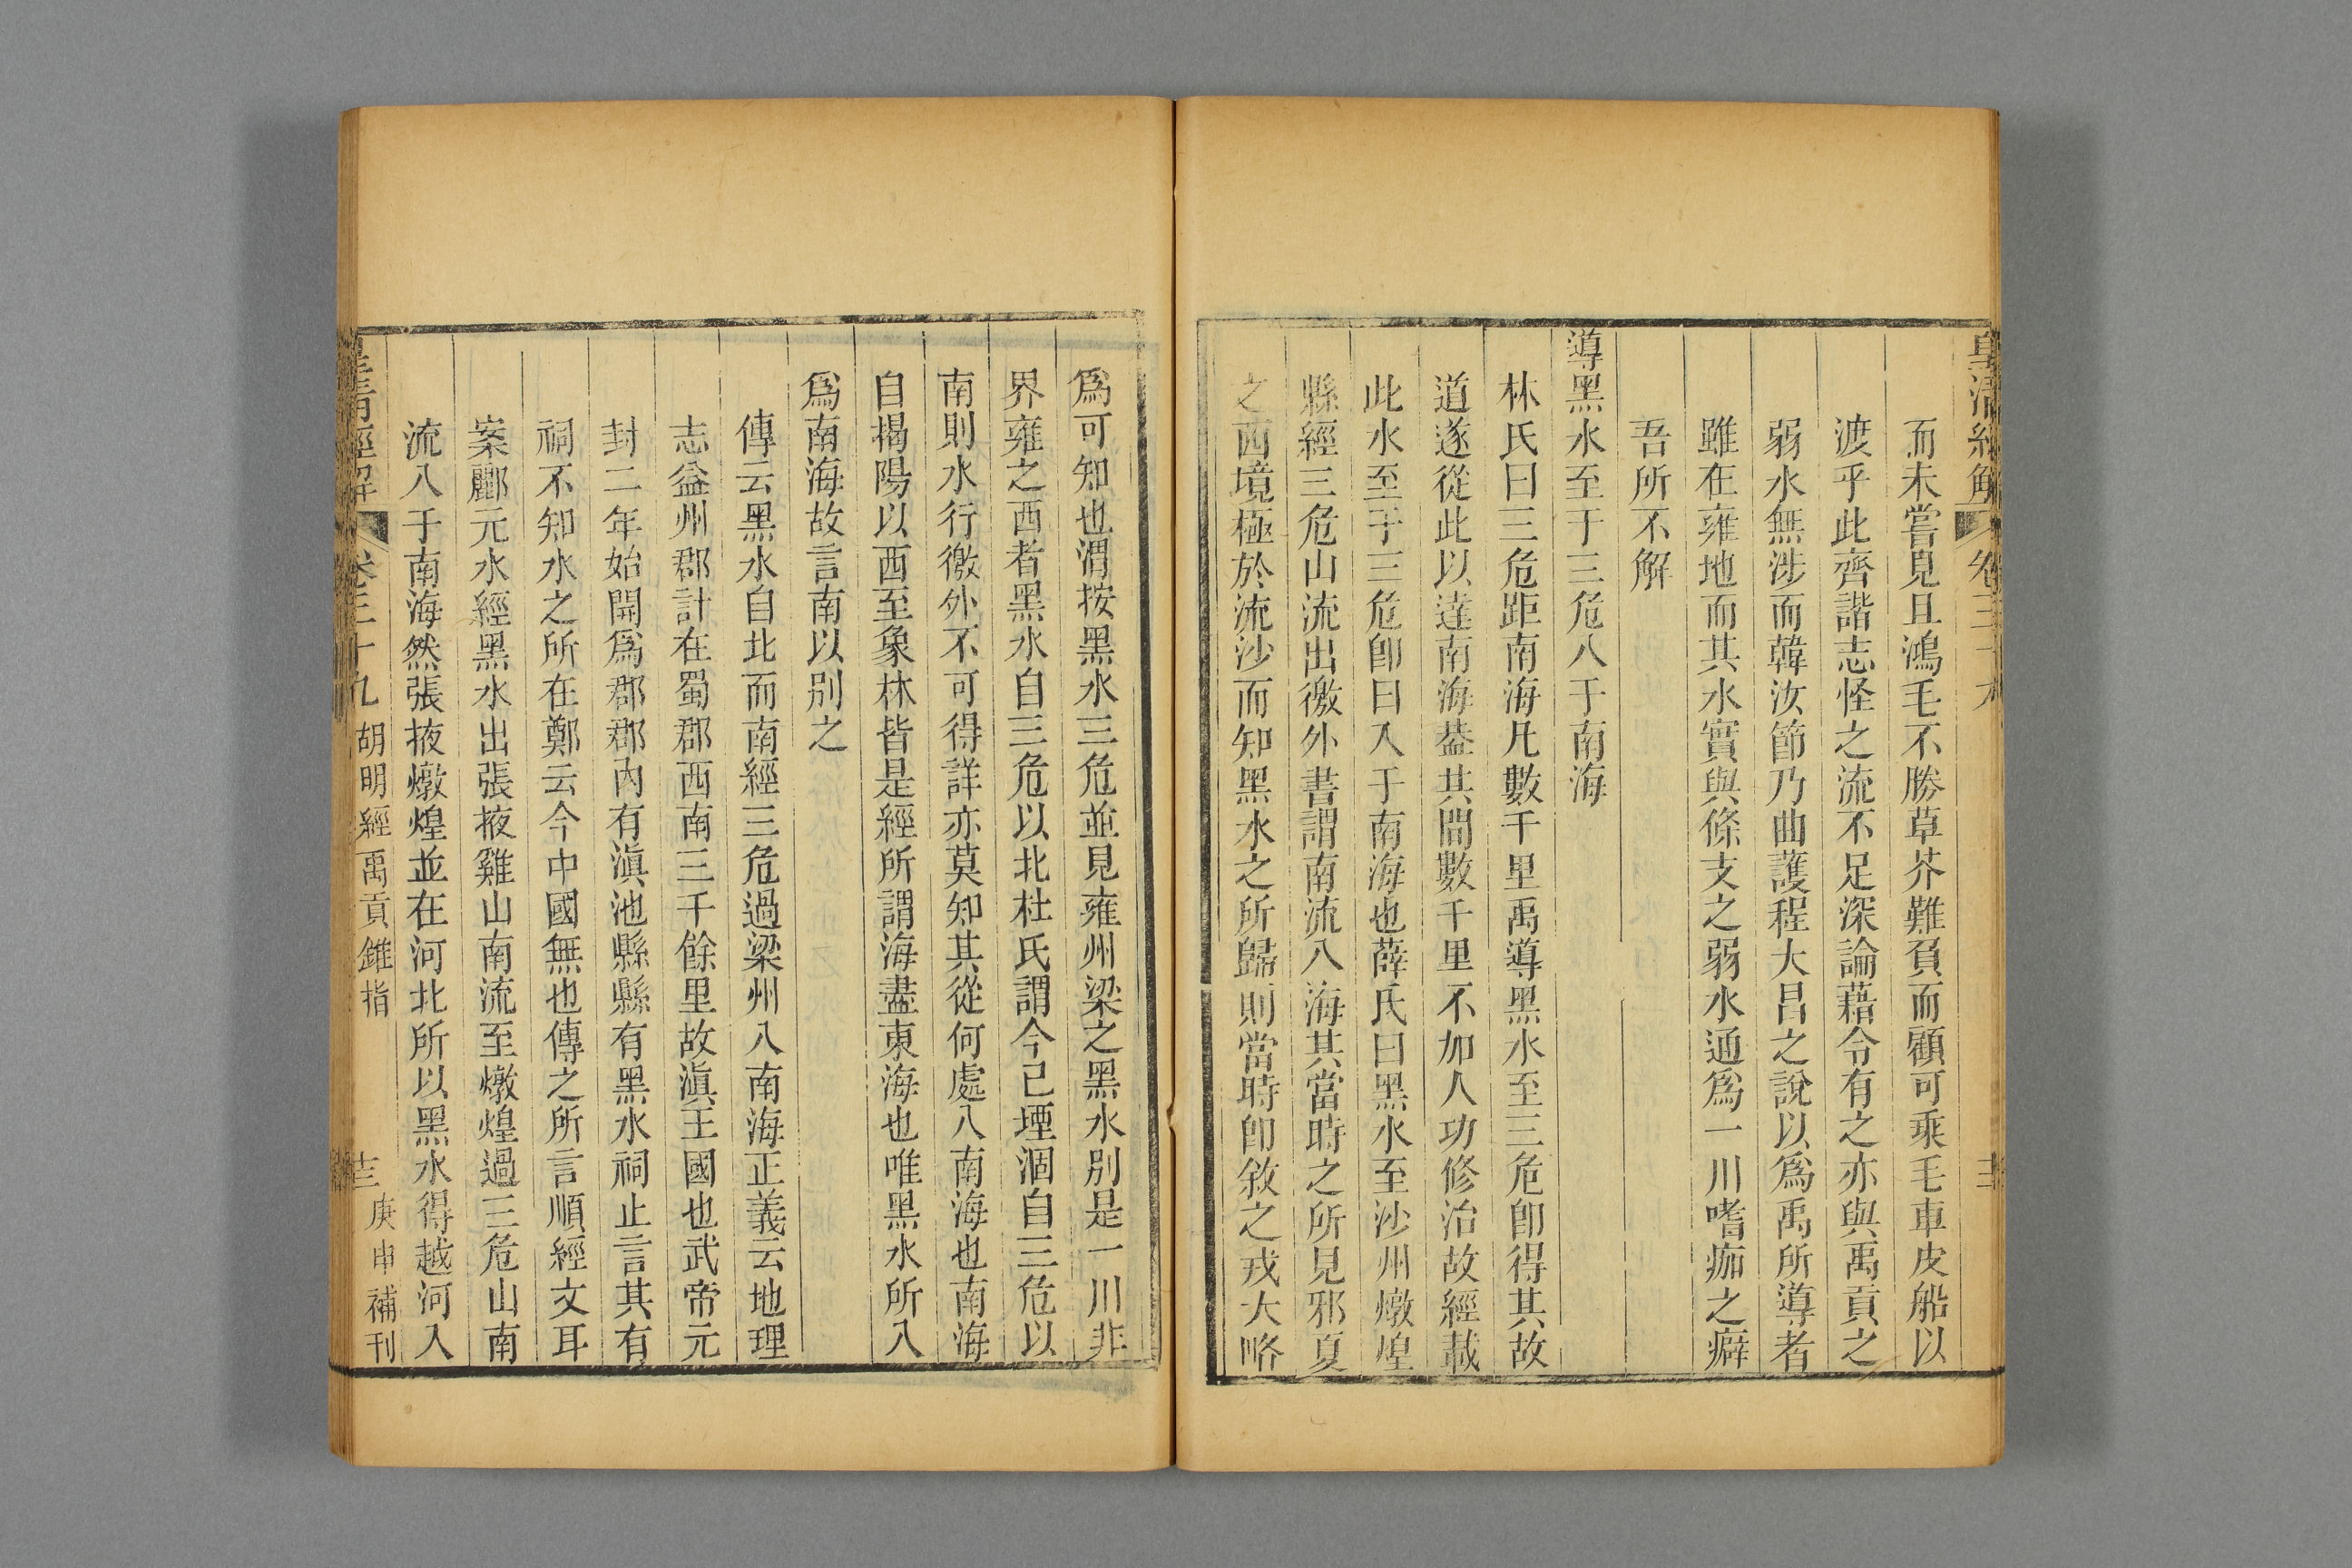 皇清經解 卷三十九 十二
而未嘗見且鴻毛不勝草芥難負而顧可乘毛車皮船以
渡乎此齊諧志怪之流不足深論藉令有之亦與禹貢之
弱水無涉而韓汝節乃曲護程大昌之說以爲禹所導者
雖在雍地而其水實與條支之弱水通爲一川嗜痂之癖
吾所不解
導黑水至于三危入于南海
林氏曰三危距南海凡數千里禹導黑水至三危卽得其故
道遂從此以達南海葢其閒數千里不加人功修治故經載
此水至于三危卽曰入于南海也薛氏曰黑水至沙州燉煌
縣經三危山流出徼外書謂南流入海其當時之所見邪夏
之西境極於流沙而知黑水之所歸則當時卽敘之戎大略
爲可知也渭按黑水三危並見雍州梁之黑水別是一川非
界雍之西者黑水自三危以北杜氏謂今已堙涸自三危以
南則水行徼外不可得詳亦莫知其從何處入南海也南海
自揭陽以西至象林皆是經所謂海盡東海也唯黑水所入
爲南海故言南以別之
傳云黑水自北而南經三危過梁州入南海正義云地理
志益州郡計在蜀郡西南三千餘里故滇王國也武帝元
封二年始開爲郡郡內有滇池縣縣有黑水祠止言其有
祠不知水之所在鄭云今中國無也傳之所言順經文耳
案酈元水經黑水出張掖雞山南流至燉煌過三危山南
流入于南海然張掖燉煌並在河北所以黑水得越河入
皇清經解 卷三十九 胡明經禹貢錐指 十三 庚申補刊